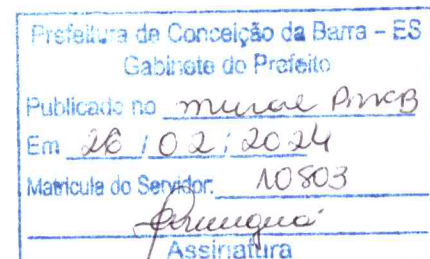 Prefeitura de Conceição da Barra – ES
Gabinete do Prefeito
Publicado no mural PMCB
Em 26 / 02 / 2024
Matricula do Servidor: 10803
Assinatura